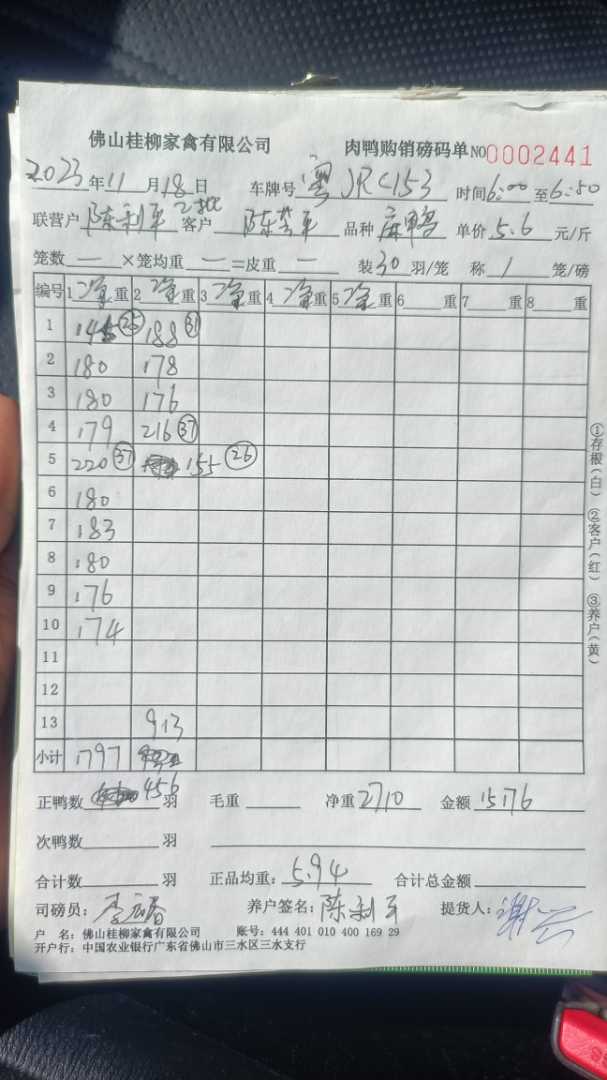 佛山桂柳家禽有限公司 肉鸭购销磅码单 NO0002441
2023年11月18日 车牌号 粤JRC153 时间6:00至6:50
联营户 陈利平 客户 陈芸平 品种 麻鸭 单价 5.6 元/斤
笼数 — ×笼均重 — =皮重 — 装30羽/笼 称 1 笼/磅
编号 1净重 2净重 3净重 4净重 5净重 6 重 7 重 8 重
1 145 25 188 31
2 180 178
3 180 176
4 179 216 37
5 220 37 155 26
6 180
7 183
8 180
9 176
10 174
11
12
13 913
小计 1797
正鸭数 456 羽 毛重 净重 2710 金额 15176
次鸭数 羽
合计数 羽 正品均重: 5.94 合计总金额
司磅员: 养户签名: 陈利平 提货人:
户 名: 佛山桂柳家禽有限公司 账号: 444 401 010 400 169 29
开户行: 中国农业银行广东省佛山市三水区三水支行
①存根(白) ②客户(红) ③养户(黄)